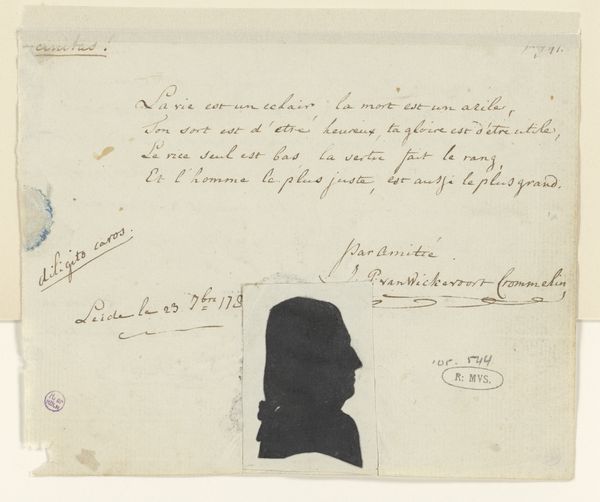 anitas!
La vie est un eclair la mort est un azile,
Ton sort est d'etré heureux, ta gloire est d'être utile,
Le vice seul est bas, la vertu fait le rang,
Et l'homme le plus juste, est aussi le plus grand.
diligito caros.
par amitié
J. P. van Wickevoort Crommelin,
Leide le 23 7bre 178
544
R: MVS.